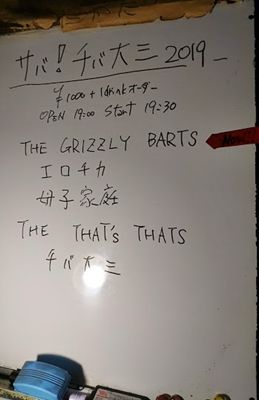 サバ!チバ大三 2019
¥1000+1drinkオーダー
OPEN 19:00 Start 19:30
THE GRIZZLY BARTS
エロチカ
母子家庭
THE THAT's THATS
チバ大三